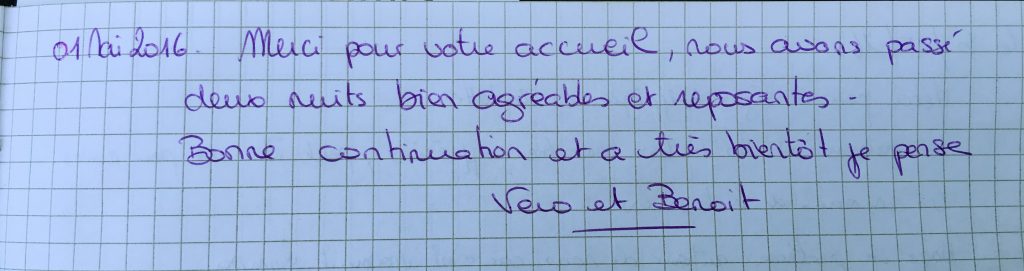 01 Mai 2016. Merci pour votre accueil, nous avons passé
deux nuits bien agréables et reposantes.
Bonne continuation et a très bientôt je pense
Vero et Benoit